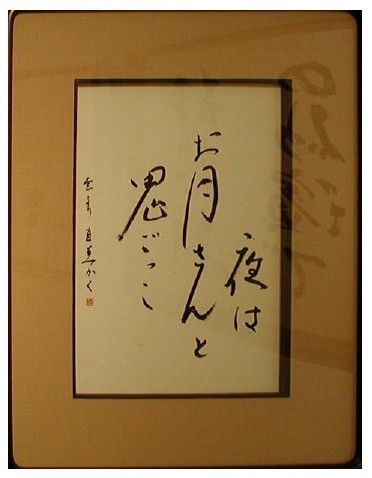 夜は
お月さんと
鬼ごっこ
直美かく